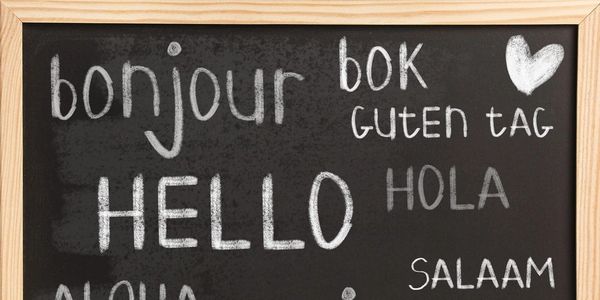 bonjour
bok
GUtEN tAG
HELLO
HOLA
SALAAM
ALOHA